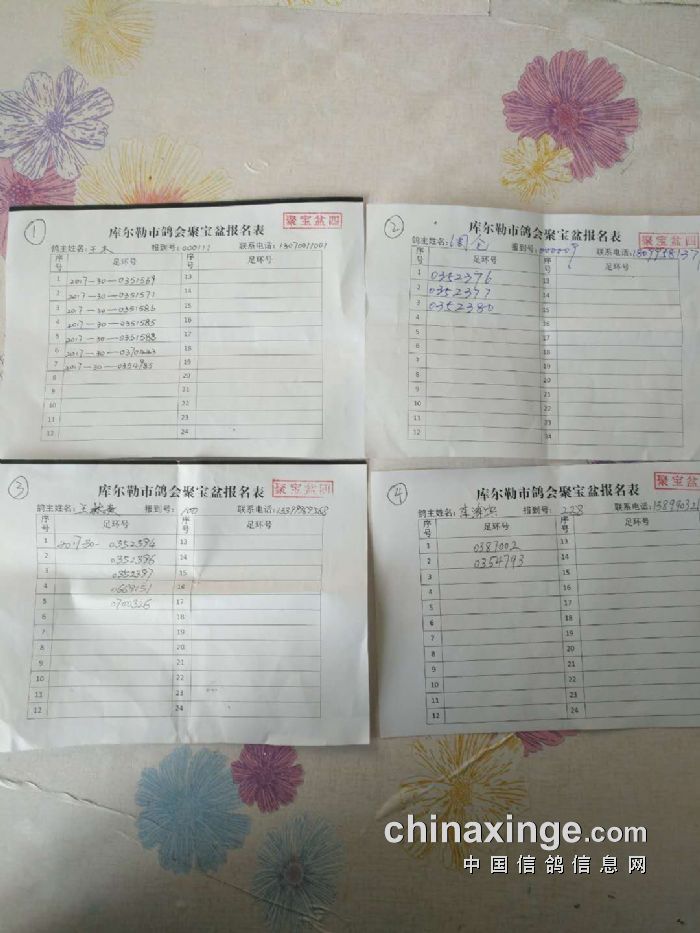 ①
库尔勒市鸽会聚宝盆报名表
聚宝盆四
鸽主姓名: 王木 报到号: 000111 联系电话:
序号 足环号 序号 足环号
1 2017-30-0351569 13
2 2017-30-0351571 14
3 2017-30-0351586 15
4 2017-30-0351585 16
5 2017-30-0351588 17
6 2017-30- 18
7 2017-30-0354985 19
8 20
9 21
10 22
11 23
12 24
②
库尔勒市鸽会聚宝盆报名表
聚宝盆四
鸽主姓名: 报到号: 000009 联系电话:
序号 足环号 序号 足环号
1 0352376 13
2 0352377 14
3 0352380 15
4 16
5 17
6 18
7 19
8 20
9 21
10 22
11 23
12 24
③
库尔勒市鸽会聚宝盆报名表
聚宝盆四
鸽主姓名: 王 报到号: 100 联系电话:
序号 足环号 序号 足环号
1 2017-30- 0352394 13
2 0352396 14
3 0352397 15
4 0669151 16
5 0700326 17
6 18
7 19
8 20
9 21
10 22
11 23
12 24
④
库尔勒市鸽会聚宝盆报名表
聚宝盆
鸽主姓名: 报到号: 228 联系电话:
序号 足环号 序号 足环号
1 0387002 13
2 0354793 14
3 15
4 16
5 17
6 18
7 19
8 20
9 21
10 22
11 23
12 24
chinaxinge.com
中国信鸽信息网